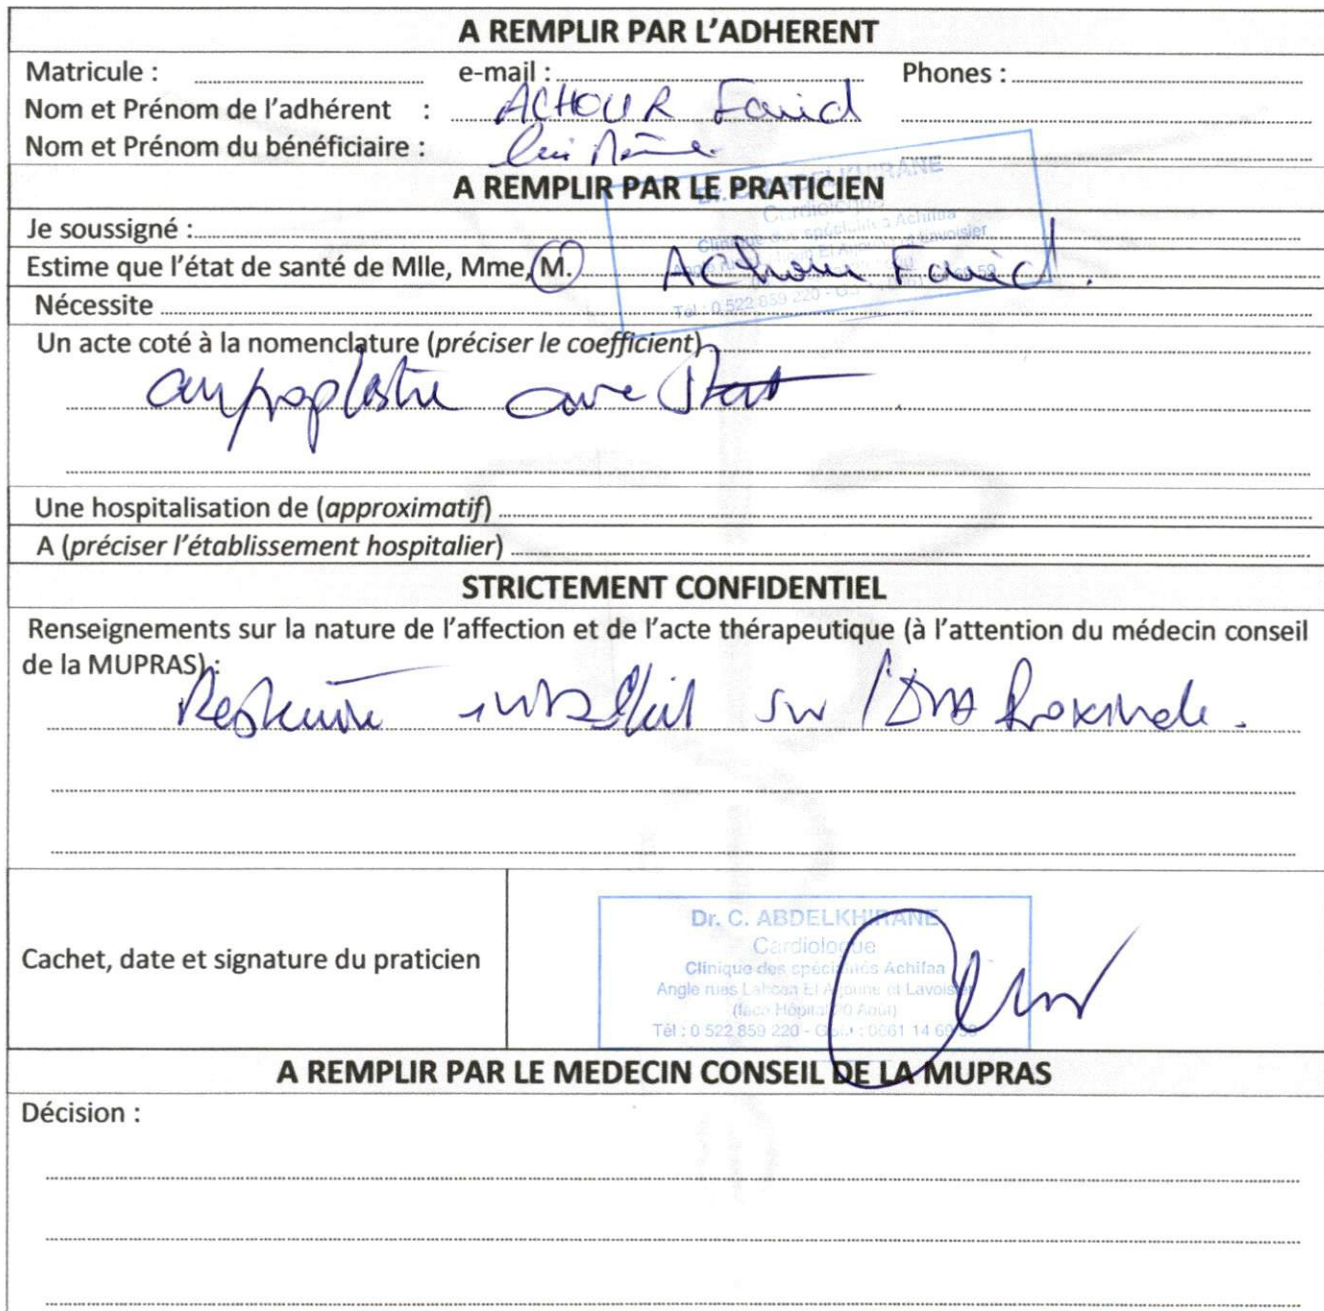 A REMPLIR PAR L'ADHERENT
Matricule : e-mail : Phones :
Nom et Prénom de l'adhérent : ACHOUR Farid
Nom et Prénom du bénéficiaire : lui même
A REMPLIR PAR LE PRATICIEN
Dr. C. ABDELKHIRANE
Cardiologue
Clinique des spécialités Achifaa
Je soussigné :
Estime que l'état de santé de Mlle, Mme, M. Achour Farid.
Tél : 0 522 859 220
Nécessite
Un acte coté à la nomenclature (préciser le coefficient)
angioplastie avec Stent
Une hospitalisation de (approximatif)
A (préciser l'établissement hospitalier)
STRICTEMENT CONFIDENTIEL
Renseignements sur la nature de l'affection et de l'acte thérapeutique (à l'attention du médecin conseil
de la MUPRAS) :
sur l' proximale.
Dr. C. ABDELKHIRANE
Cardiologue
Cachet, date et signature du praticien
Clinique des spécialités Achifaa
Angle rues Lahcen El et Lavoisier
(face Hôpital 20 Août)
Tél : 0 522 859 220 - : 0661 14 60
A REMPLIR PAR LE MEDECIN CONSEIL DE LA MUPRAS
Décision :